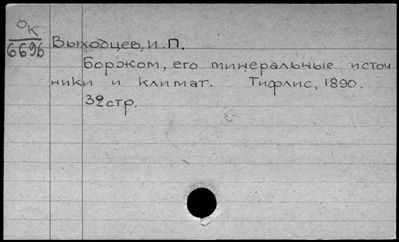 ОК
6696
Выходцев, И. П.
Боржом, его минеральные источ
ники и климат. Тифлис, 1890.
32стр.